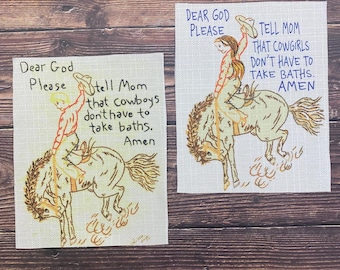 Dear God
Please
tell Mom
that cowboys
don't have to
take baths.
Amen
DEAR GOD
PLEASE
TELL MOM
THAT COWGIRLS
DON'T HAVE TO
TAKE BATHS.
AMEN